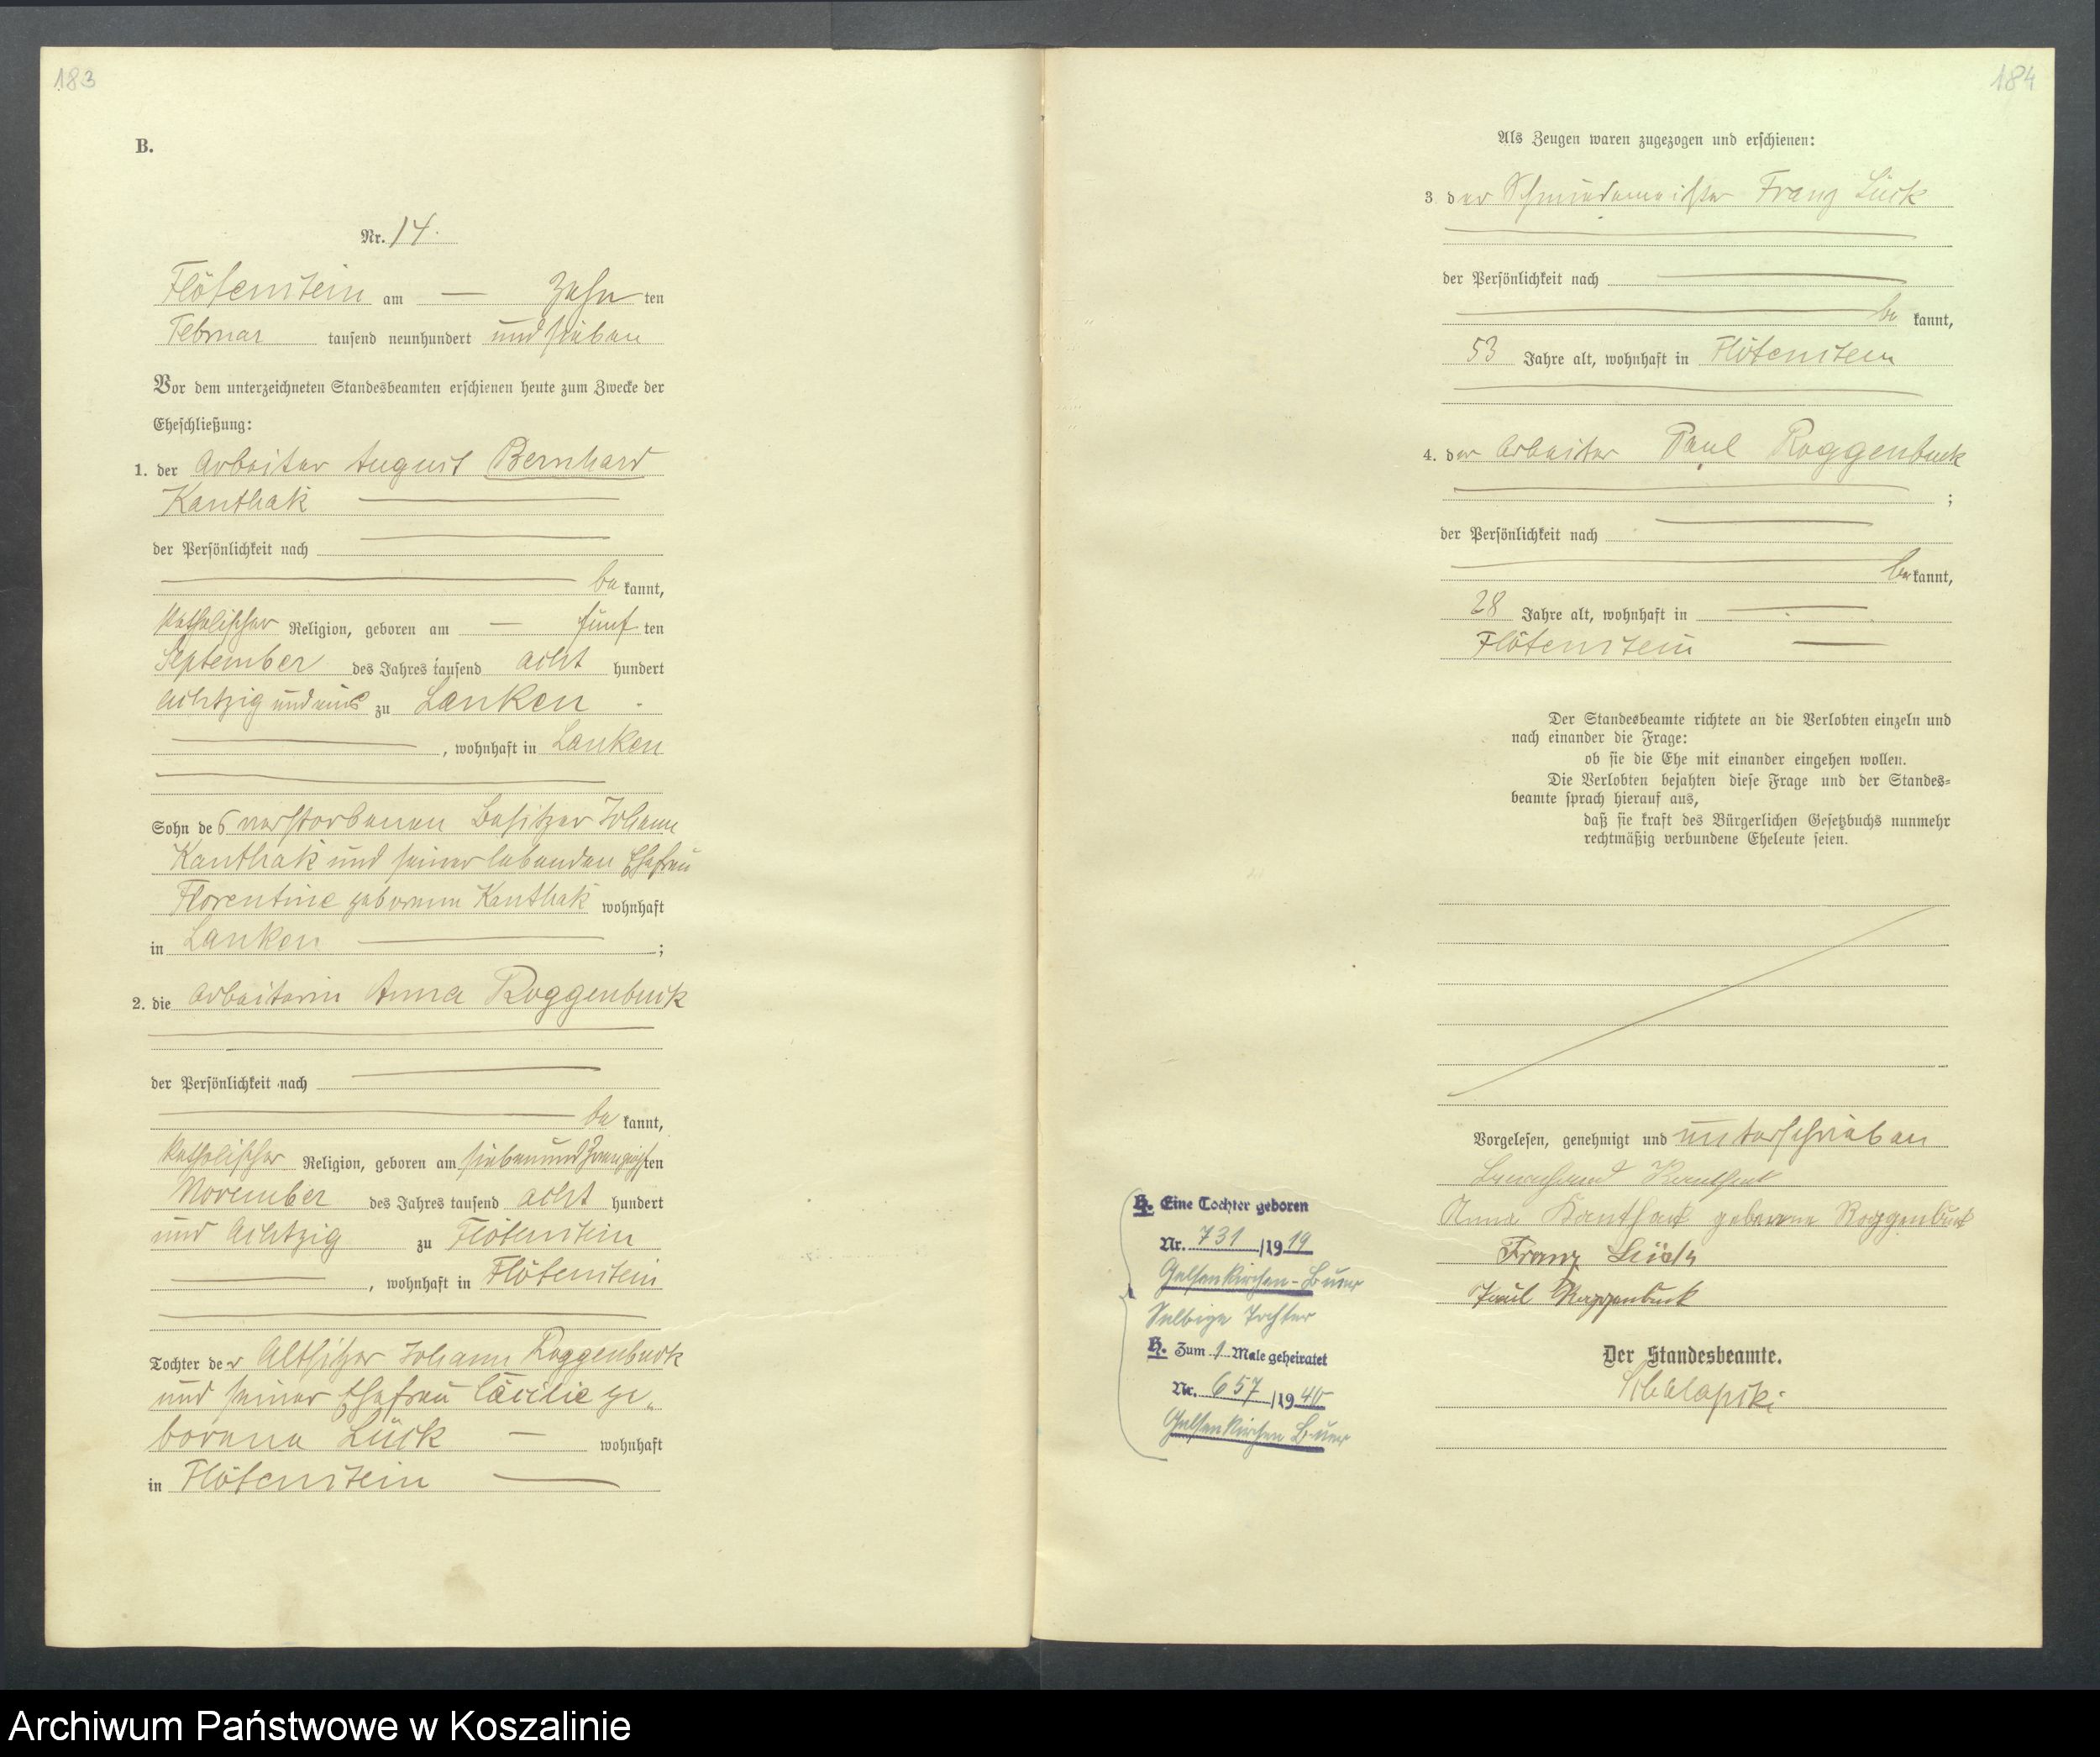 183
B.
Nr. 14.
Flötenstein am — zehn ten
Februar tausend neunhundert und sieben
Vor dem unterzeichneten Standesbeamten erschienen heute zum Zwecke der
Eheschließung:
1. der Arbeiter August Bernhard
Kanthak
der Persönlichkeit nach
be kannt,
katholischer Religion, geboren am — fünf ten
September des Jahres tausend acht hundert
achtzig und eins zu Lanken
, wohnhaft in Lanken
Sohn des verstorbenen Besitzer Johann
Kanthak und seiner lebenden Ehefrau
Florentine geborenen Kanthak wohnhaft
in Lanken ;
2. die Arbeiterin Anna Roggenbuck
der Persönlichkeit nach
be kannt,
katholischer Religion, geboren am siebenundzwanzigsten
November des Jahres tausend acht hundert
und achtzig zu Flötenstein
, wohnhaft in Flötenstein
Tochter der Altsitzer Johann Roggenbuck
und seiner Ehefrau Cäcilie ge„
borene Lück — wohnhaft
in Flötenstein
184
Als Zeugen waren zugezogen und erschienen:
3 der Schmiedemeister Franz Lück
der Persönlichkeit nach
be kannt,
53 Jahre alt, wohnhaft in Flötenstein
4. der Arbeiter Paul Roggenbuck
;
der Persönlichkeit nach
be kannt,
28 Jahre alt, wohnhaft in
Flötenstein
Der Standesbeamte richtete an die Verlobten einzeln und
nach einander die Frage:
ob sie die Ehe mit einander eingehen wollen.
Die Verlobten bejahten diese Frage und der Standes=
beamte sprach hierauf aus,
daß sie kraft des Bürgerlichen Gesetzbuchs nunmehr
rechtmäßig verbundene Eheleute seien.
Vorgelesen, genehmigt und unterschrieben
Bernhard Kanthak
Anna Kanthak geborene Roggenbuck
Franz Lück
Paul Roggenbuck
Der Standesbeamte.
H. Eine Tochter geboren
Nr. 731 /1919
Gelsenkirchen-Buer
Selbige Tochter
H. Zum 1 Male geheiratet
Nr. 657 /1940
Gelsenkirchen Buer
Archiwum Państwowe w Koszalinie